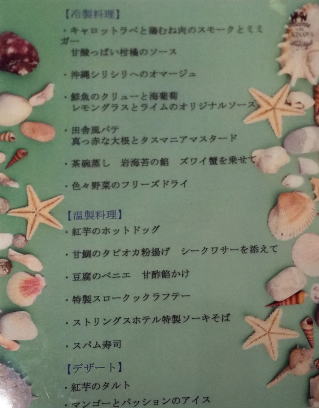 【冷製料理】
・キャロットラペと鶏むね肉のスモークとミミ
ガー
甘酸っぱい柑橘のソース
・沖縄シリシリへのオマージュ
・鮮魚のタリューと海葡萄
レモングラスとライムのオリジナルソース
・田舎風パテ
真っ赤な大根とタスマニアマスタード
・茶碗蒸し 岩海苔の餡 ズワイ蟹を乗せて
・色々野菜のフリーズドライ
【温製料理】
・紅芋のホットドッグ
・甘鯛のタピオカ粉揚げ シークワサーを添えて
・豆腐のベニエ 甘酢餡かけ
・特製スロークックラフテー
・ストリングスホテル特製ソーキそば
・スパム寿司
【デザート】
・紅芋のタルト
・マンゴーとパッションのアイス